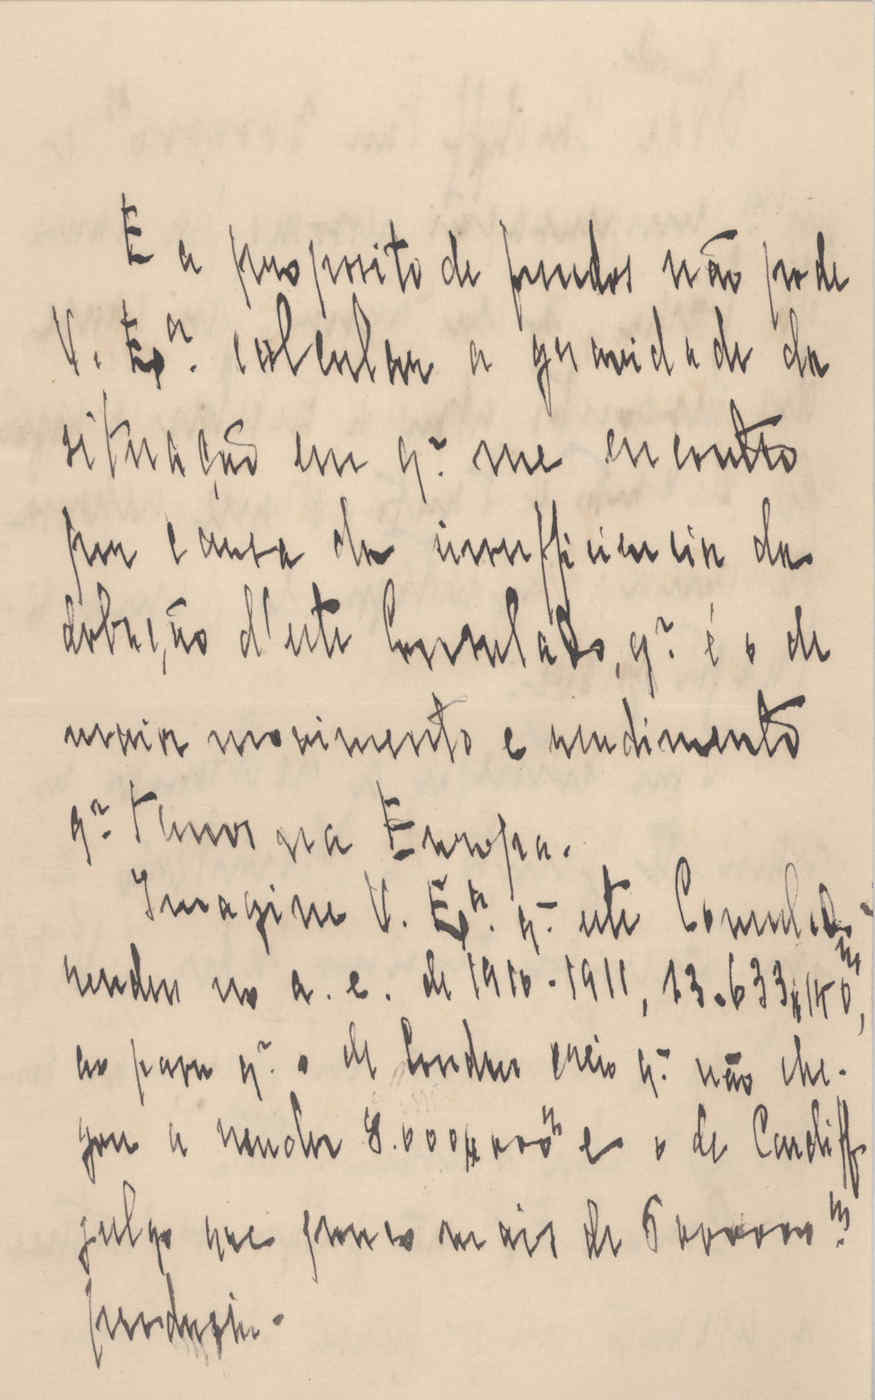 E a proposito de fundos não pode
V. Exª. calcular a gravidade da
situação em q.^e me encontro
por causa da insufficiencia da
dotação d'este Consulado, q.^e é o de
maior movimento e rendimento
q.^e temos na Europa.
Imagine V. Exª. q.^e este Consulado
rendeu no a. e. de 1910-1911, 13.633$140^rs,
ao passo q.^e o de Londres creio q.^e não che-
gou a render 8.000$000^rs e o de Cardiff
julgo que pouco mais de 6000000^rs
produziu.